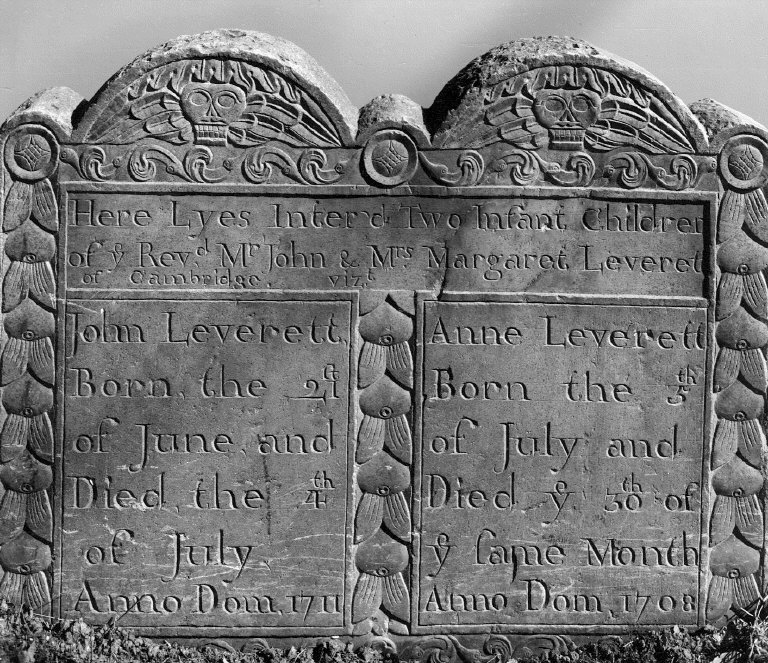 Here Lyes Inter'd Two Infant Children
of yᵉ Revᵈ Mʳ John & Mʳˢ Margaret Leveret
of Cambridge, vizᵗ
John Leverett,
Born, the 21ˢᵗ
of June, and
Died, the 4ᵗʰ
of July,
Anno Dom, 1711
Anne Leverett
Born the 5ᵗʰ
of July and
Died yᵉ 30ᵗʰ of
yᵉ ſame Month
Anno Dom, 1708